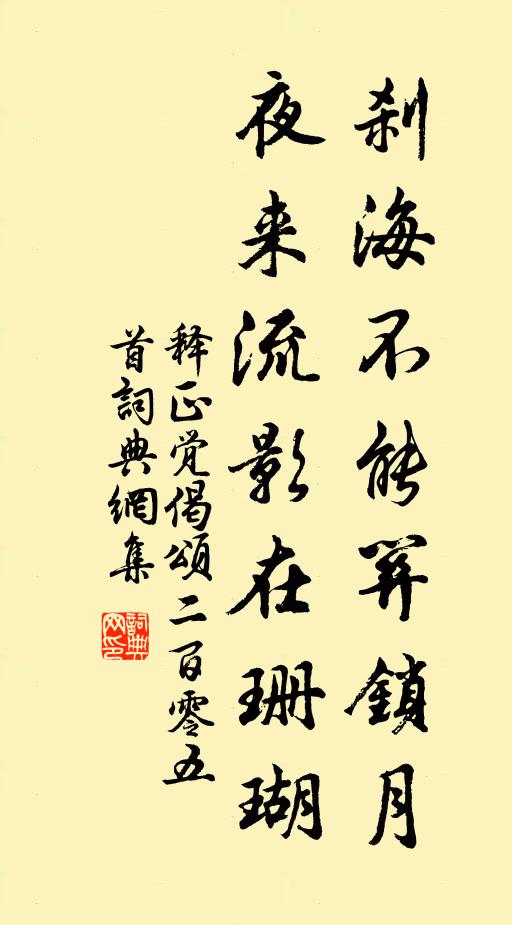 刹海不能关鎖月
夜来流影在珊瑚
释正觉偈頌二百零五
首詞典網集
詞典
网印